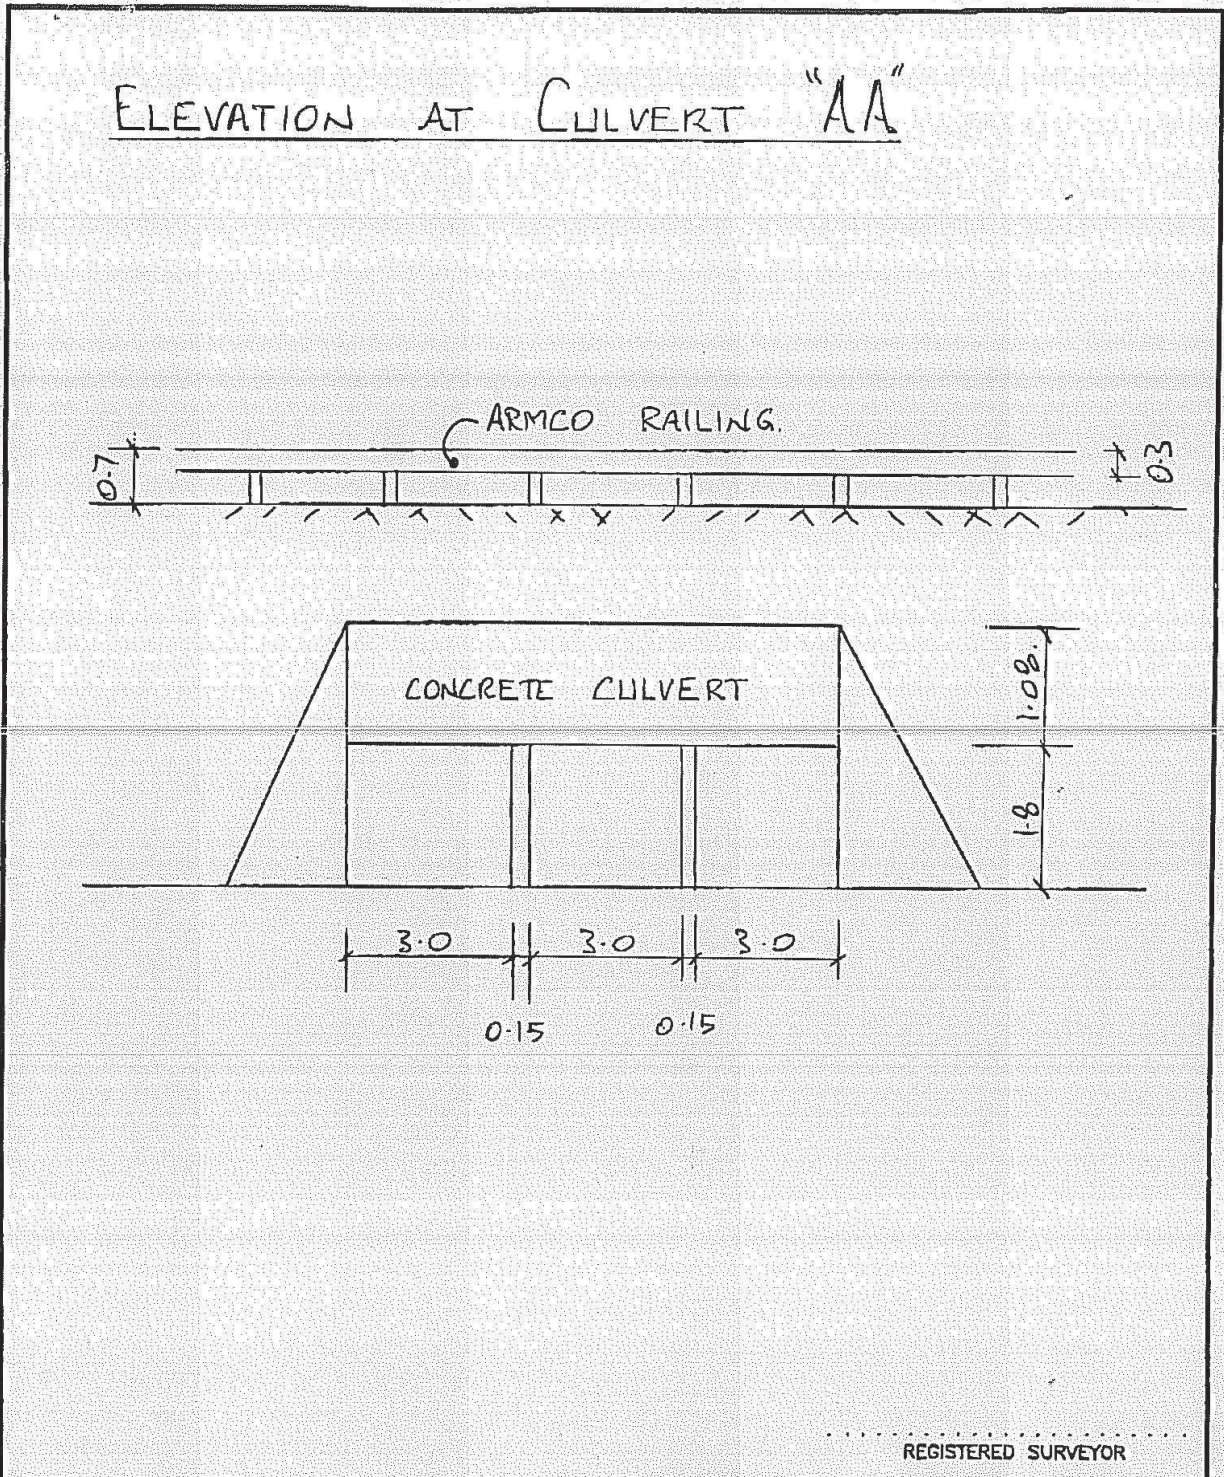 ELEVATION AT CULVERT "AA"
ARMCO RAILING.
0.7
0.3
CONCRETE CULVERT
1.08.
1.8
3.0 3.0 3.0
0.15 0.15
REGISTERED SURVEYOR